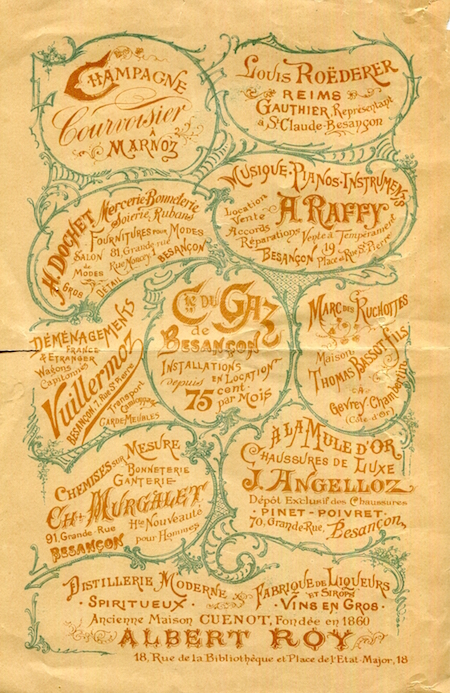 CHAMPAGNE
Courvoisier
À
MARNOZ
LOUIS ROËDERER
REIMS
GAUTHIER, Représentant
à St Claude-Besançon
H. DOCHET
Mercerie Bonneterie
Soierie, Rubans
FOURNITURES POUR MODES
SALON DE MODES
81, Grande-rue
Rue Moncey
GROS
DÉTAIL
BESANÇON
MUSIQUE-PIANOS-INSTRUMENTS
Location
Vente
Accords
Réparations
A. RAFFY
Vente à Tempérament
BESANÇON, 19, Place et Rue St Pierre
DÉMÉNAGEMENTS
FRANCE
& ETRANGER
Wagons
Capitonnés
Vuillermoz
BESANÇON, 7, Rue St Pierre
Transport
Camionnage
GARDE-MEUBLES
Cie DU GAZ
de
BESANÇON
INSTALLATIONS
EN LOCATION
depuis
75 cent.
par Mois
MARC DES RUCHOTTES
Maison
THOMAS BASSOT FILS
CA
GEVREY-Chambertin
(Côte d'Or)
CHEMISES SUR MESURE
BONNETERIE
GANTERIE
CH. MURGALET
91, Grande-Rue
BESANÇON
Hte Nouveauté
pour Hommes
A LA MULE D'OR
CHAUSSURES DE LUXE
J. ANGELLOZ
Dépôt Exclusif des Chaussures
PINET-POIVRET
70, Grande-Rue, Besançon
DISTILLERIE MODERNE
FABRIQUE DE LIQUEURS
ET SIROPS
SPIRITUEUX
VINS EN GROS
Ancienne Maison CUENOT, Fondée en 1860
ALBERT ROY
18, Rue de la Bibliothèque et Place de l'Etat-Major, 18